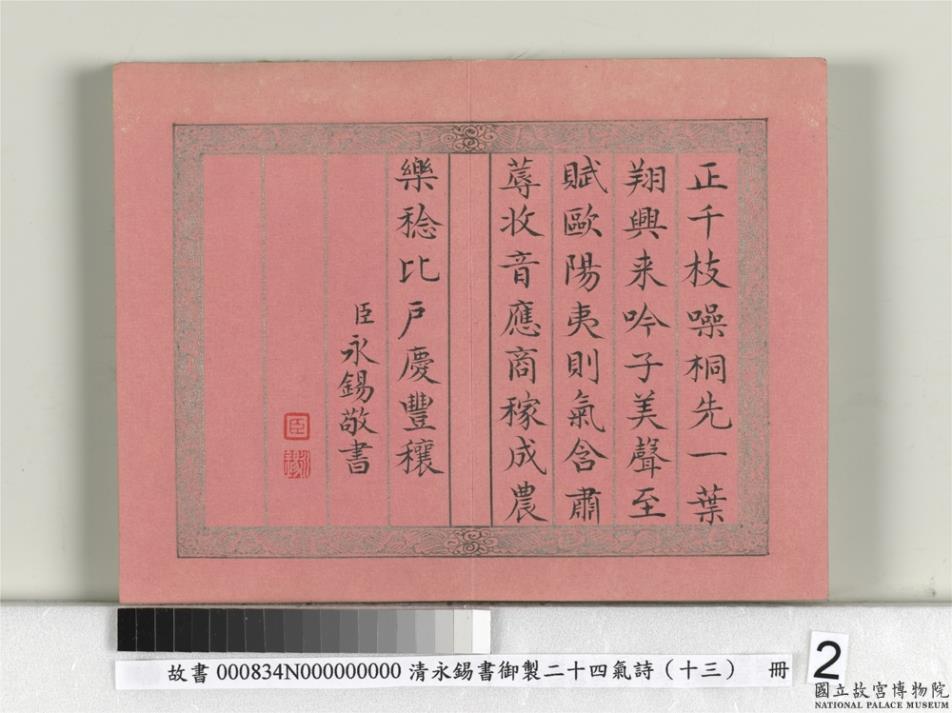 正千枝噪桐先一葉
翔興来吟子美聲至
賦歐陽夷則氣含肅
蓐收音應商稼成農
樂稔比戶慶豐穰
臣永錫敬書
臣
故書 000834N000000000 清永錫書御製二十四氣詩（十三） 冊
2
國立故宮博物院
NATIONAL PALACE MUSEUM